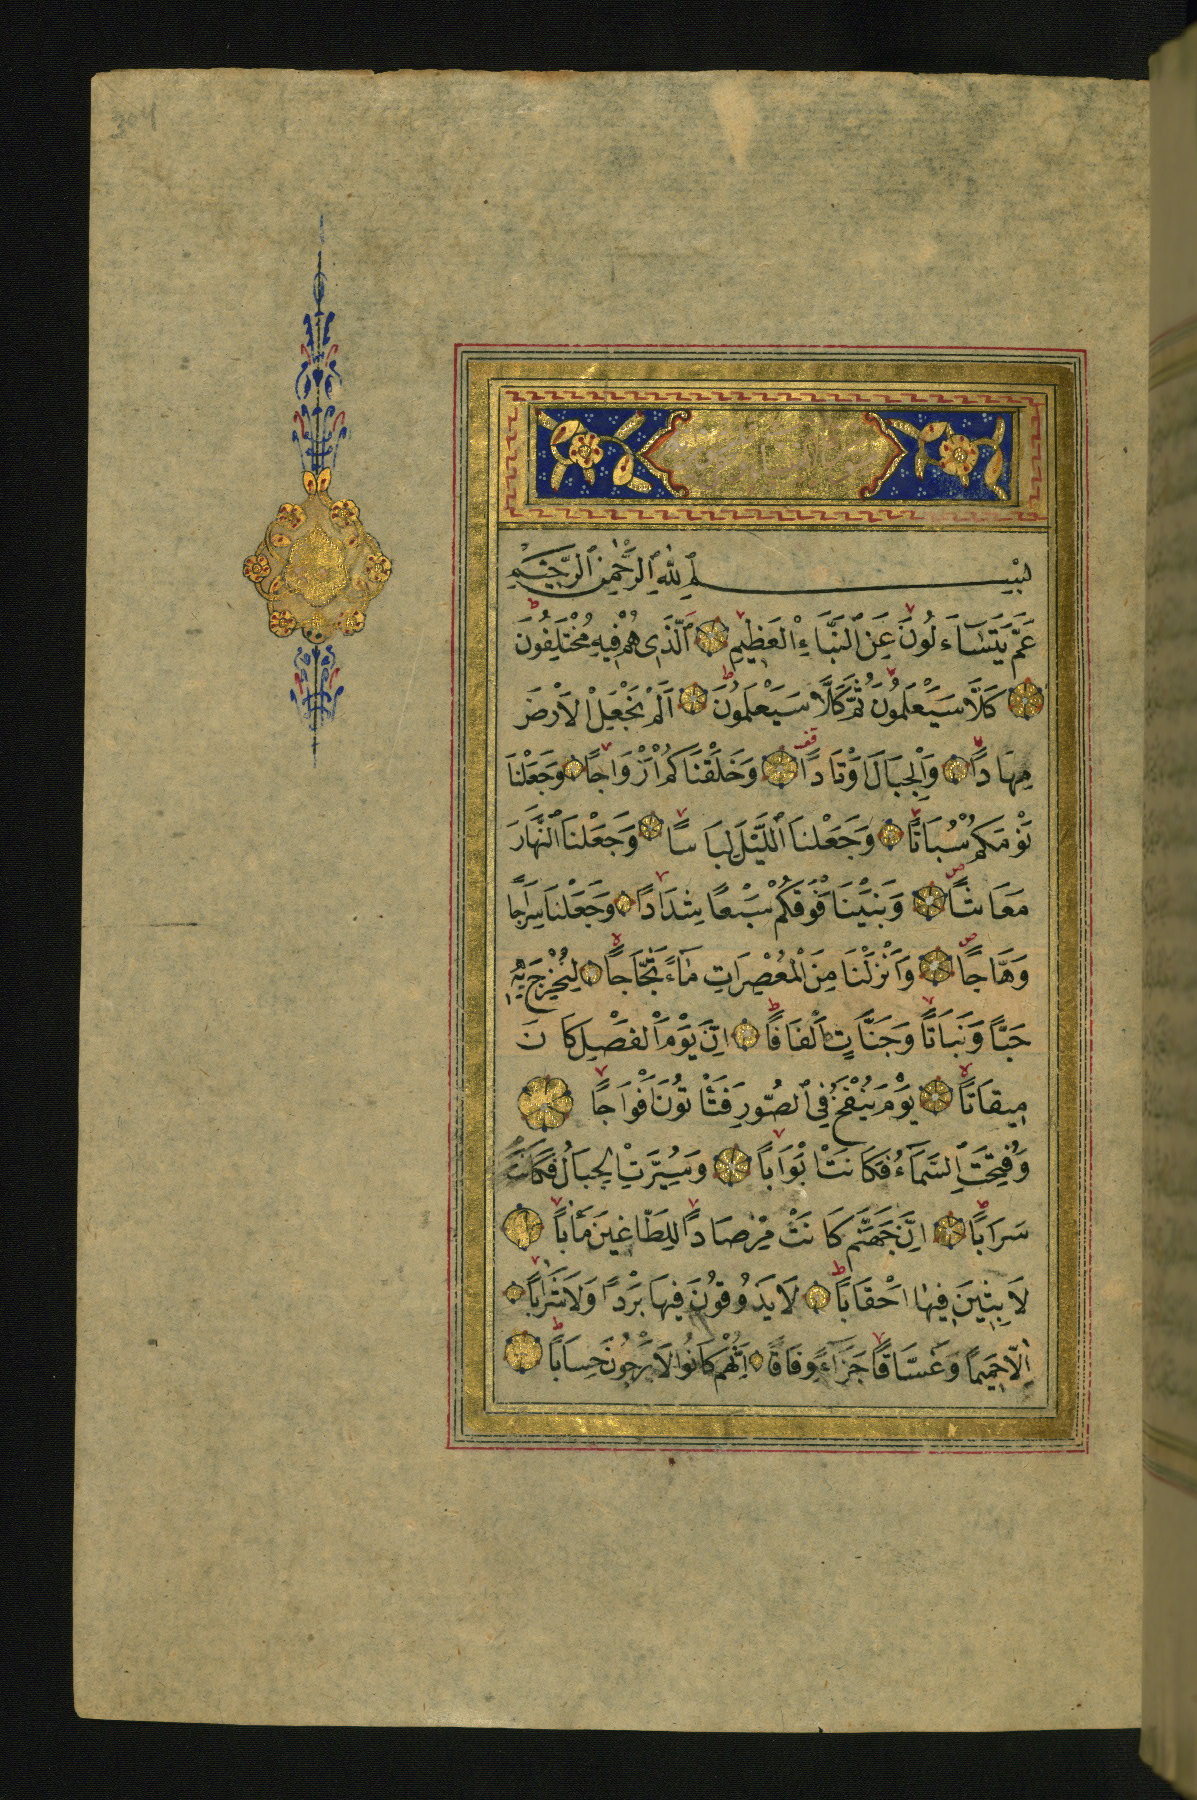 304
بِسْمِ ٱللّٰهِ ٱلرَّحْمٰنِ ٱلرَّحِيْمِ
عَمَّ يَتَسَآءَلُونَ عَنِ ٱلنَّبَاءِ ٱلْعَظِيْمِ ٱلَّذَى هُمْ فِيهِ مُخْتَلِفُونَ
كَلَّا سَيَعْلَمُونَ ثُمَّ كَلَّا سَيَعْلَمُونَ اَلَمْ نَجْعَلِ الْاَرْضَ
مِهَادًا وَالْجِبَالَ اَوْتَادًا وَخَلَقْنَاكُمْ اَزْوَاجًا وَجَعَلْنَا
نَوْمَكُمْ سُبَاتًا وَجَعَلْنَا ٱللَّيْلَ لِبَاسًا وَجَعَلْنَا ٱلنَّهَارَ
مَعَاشًا وَبَنَيْنَا فَوْقَكُمْ سَبْعًا شِدَادًا وَجَعَلْنَا سِرَاجًا
وَهَّاجًا وَاَنْزَلْنَا مِنَ ٱلْمُعْصِرَاتِ مَآءً ثَجَّاجًا لِنُخْرِجَ بِهِ
حَبًّا وَنَبَاتًا وَجَنَّاتٍ اَلْفَافًا اِنَّ يَوْمَ الْفَصْلِ كَانَ
مِيقَاتًا يَوْمَ يُنْفَخُ فِي ٱلصُّورِ فَتَاْتُونَ اَفْوَاجًا
وَفُتِحَتِ ٱلسَّمَآءُ فَكَانَتْ اَبْوَابًا وَسُيِّرَتِ الْجِبَالُ فَكَانَتْ
سَرَابًا اِنَّ جَهَنَّمَ كَانَتْ مِرْصَادًا لِلطَّاغِينَ مَاٰبًا
لَابِثِينَ فِيهَا اَحْقَابًا لَايَذُوقُونَ فِيهَا بَرْدًا وَلَاشَرَابًا
اِلَّا حَمِيمًا وَغَسَّاقًا جَزَآءً وِفَاقًا اِنَّهُمْ كَانُوا لَايَرْجُونَ حِسَابًا